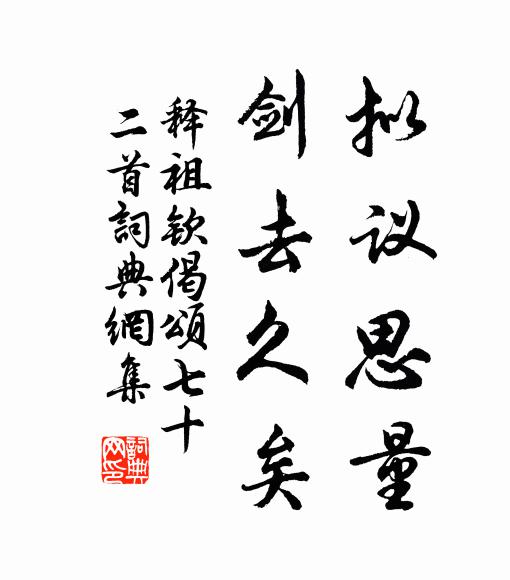 拟议思量
剑去久矣
释祖钦偈颂七十
二首詞典網集
詞典
网印